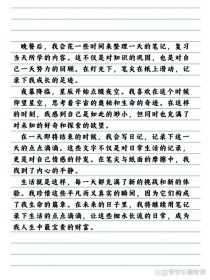 晚餐后,我会花一些时间来整理一天的笔记,复习
当天所学的内容。这不仅是对知识的巩固,也是对自
己一天努力的回顾。在灯光下,笔尖在纸上滑动,记
录下我成长的足迹。
夜幕降临,星辰开始点缀夜空。我喜欢在这个时候
仰望星空,思考着宇宙的奥秘和生命的奇迹。在这样
的时刻,我感到自己是如此的渺小,但同时也充满了
对未知的好奇和探索的欲望。
在一天即将结束的时候,我会写日记,记录下这一
天的点点滴滴。这些文字不仅是对日常生活的记录,
更是对自己情感的抒发。在笔尖与纸面的摩擦中,我
找到了内心的平静。
生活就是这样,每一天都充满了新的挑战和新的体
验。我珍惜这些平凡而又真实的瞬间,因为它们构成
了我生命的篇章。在未来的日子里,我将继续用笔记
录下生活的点点滴滴,让这些细水长流的日常,成为
我人生中最宝贵的财富。